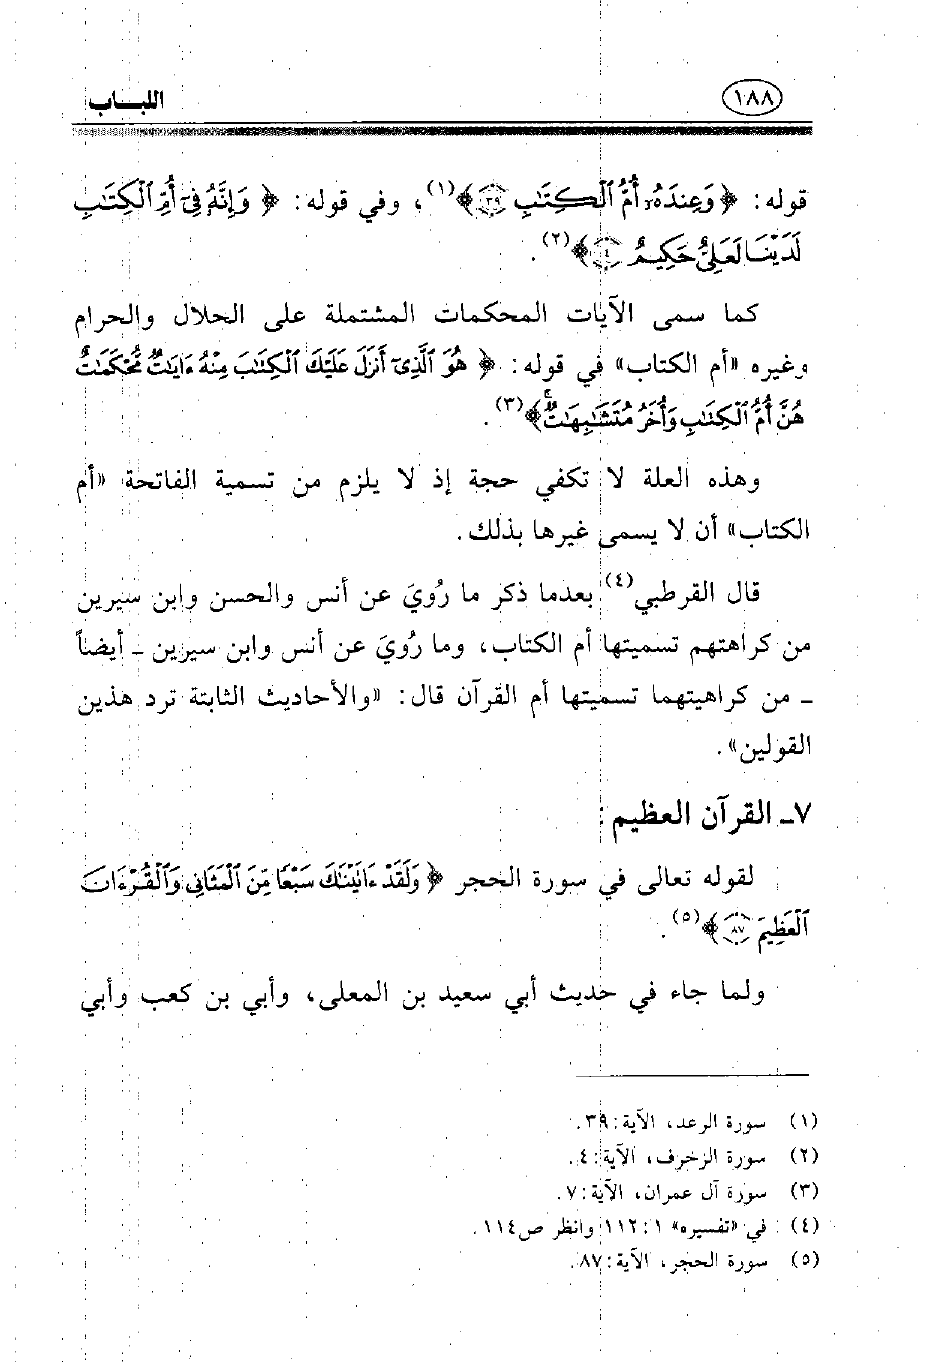 ١٨٨ اللبـاب
قوله: ﴿وَعِندَهُۥٓ أُمُّ ٱلْكِتَٰبِ ٣٩﴾(١)، وفي قوله: ﴿وَإِنَّهُۥ فِىٓ أُمِّ ٱلْكِتَٰبِ
لَدَيْنَا لَعَلِىٌّ حَكِيمٌ ٤﴾(٢).
كما سمى الآيات المحكمات المشتملة على الحلال والحرام
وغيره «أم الكتاب» في قوله: ﴿هُوَ ٱلَّذِىٓ أَنزَلَ عَلَيْكَ ٱلْكِتَٰبَ مِنْهُ ءَايَٰتٌ مُّحْكَمَٰتٌ
هُنَّ أُمُّ ٱلْكِتَٰبِ وَأُخَرُ مُتَشَٰبِهَٰتٌ ۖ﴾(٣).
وهذه العلة لا تكفي حجة إذ لا يلزم من تسمية الفاتحة «أم
الكتاب» أن لا يسمى غيرها بذلك.
قال القرطبي(٤) بعدما ذكر ما رُويَ عن أنس والحسن وابن سيرين
من كراهتهم تسميتها أم الكتاب، وما رُويَ عن أنس وابن سيرين ـ أيضاً
ـ من كراهيتهما تسميتها أم القرآن قال: «والأحاديث الثابتة ترد هذين
القولين».
٧ـ القرآن العظيم:
لقوله تعالى في سورة الحجر ﴿وَلَقَدْ ءَاتَيْنَٰكَ سَبْعًا مِّنَ ٱلْمَثَانِى وَٱلْقُرْءَانَ
ٱلْعَظِيمَ ٨٧﴾(٥).
ولما جاء في حديث أبي سعيد بن المعلى، وأبي بن كعب وأبي
(١) سورة الرعد، الآية: ٣٩.
(٢) سورة الزخرف، الآية: ٤.
(٣) سورة آل عمران، الآية: ٧.
(٤) في «تفسيره» ١: ١١٢ وانظر ص١١٤.
(٥) سورة الحجر، الآية: ٨٧.